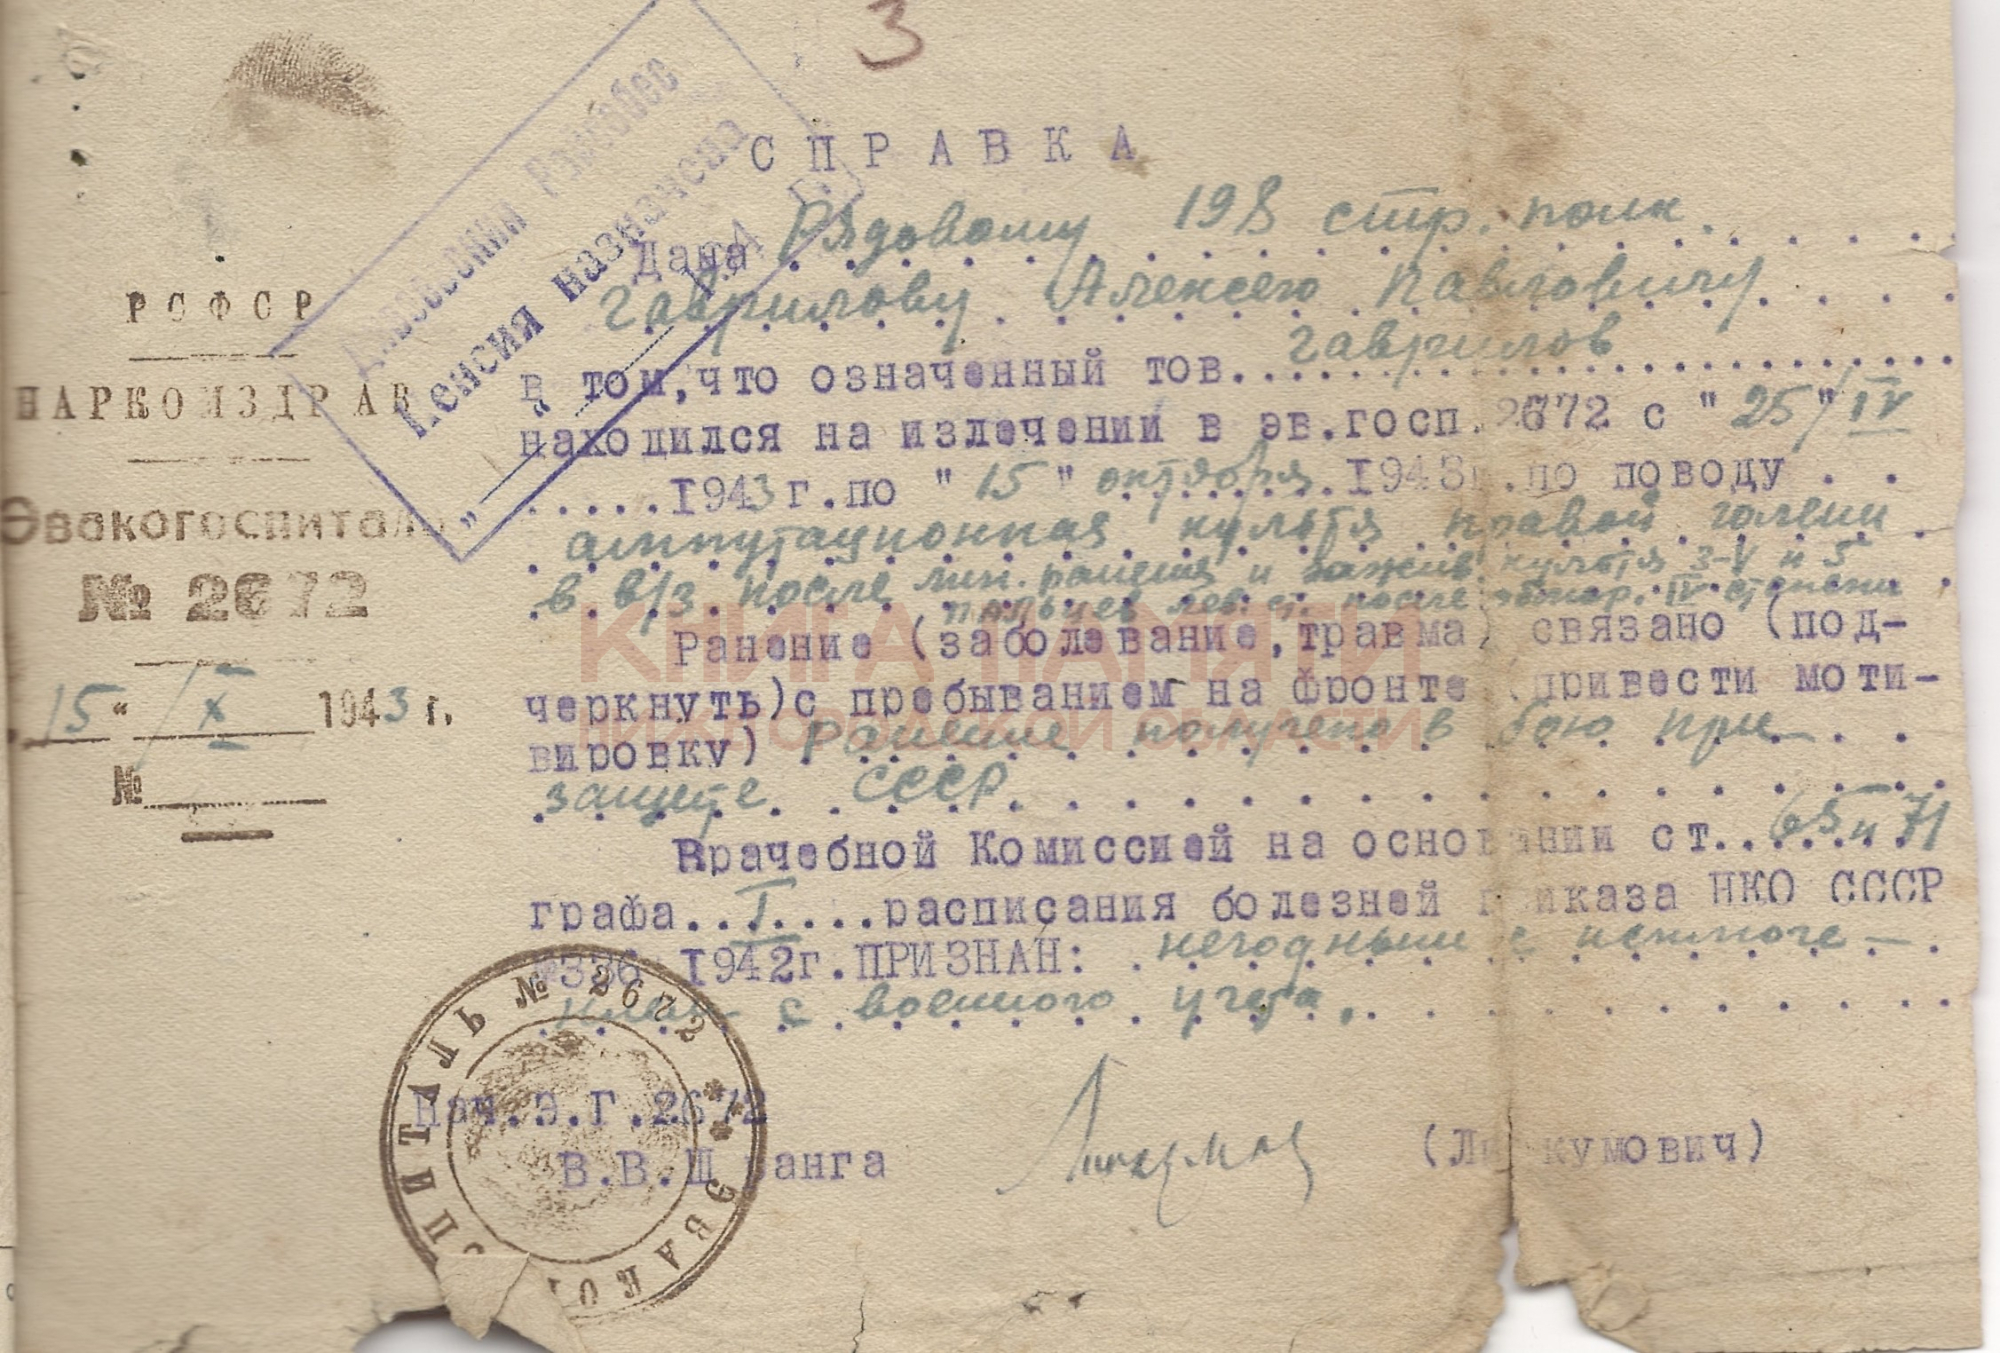 3
СПРАВКА
Дана Рядовому 198 стр. полк
Гаврилову Алексею Павловичу
в том, что означенный тов. Гаврилов
находился на излечении в эв.госп. 2672 с "25"/IV
1943г. по "15" октября 1943г. по поводу
ампутационная культя правой голени
в в/з. после мин. ранения и культя 3-V и 5
пальцев лев. ст. после отмор. IV степени
Ранение (заболевание, травма) связано (под-
черкнуть) с пребыванием на фронте (привести моти-
вировку) Ранение получено в бою при
защите СССР.
Врачебной Комиссией на основании ст. 65 и 71
графа I расписания болезней приказа НКО СССР
№336 1942г. ПРИЗНАН: негодным с исключе-
нием с военного учета.
Нач. Э.Г. 2672
В.В.Ш ранга
(Ли кумович)
РСФСР
НАРКОМЗДРАВ
Эвакогоспиталь
№ 2672
"15" X 1943 г.
№
Райсобес
Пенсия назначена
" " 194 г.
ЭВАКОГОСПИТАЛЬ № 2672
КНИГА ПАМЯТИ
НИЖЕГОРОДСКОЙ ОБЛАСТИ